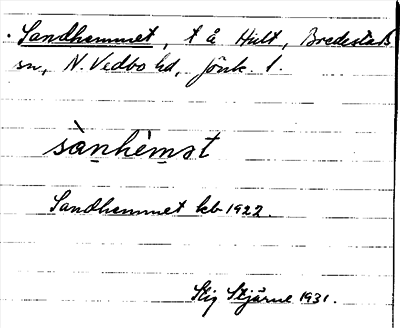 . Sandhemmet, t å Hult, Bredestads
sn, N. Vedbo hd, jönk. l.
sànhèmət
Sandhemmet kb 1922.
Stig Stjärne 1931.